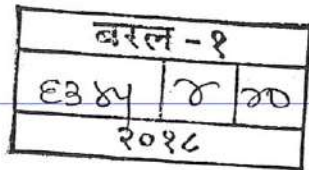 बरल - १
६३४५ ४ २०
२०१८